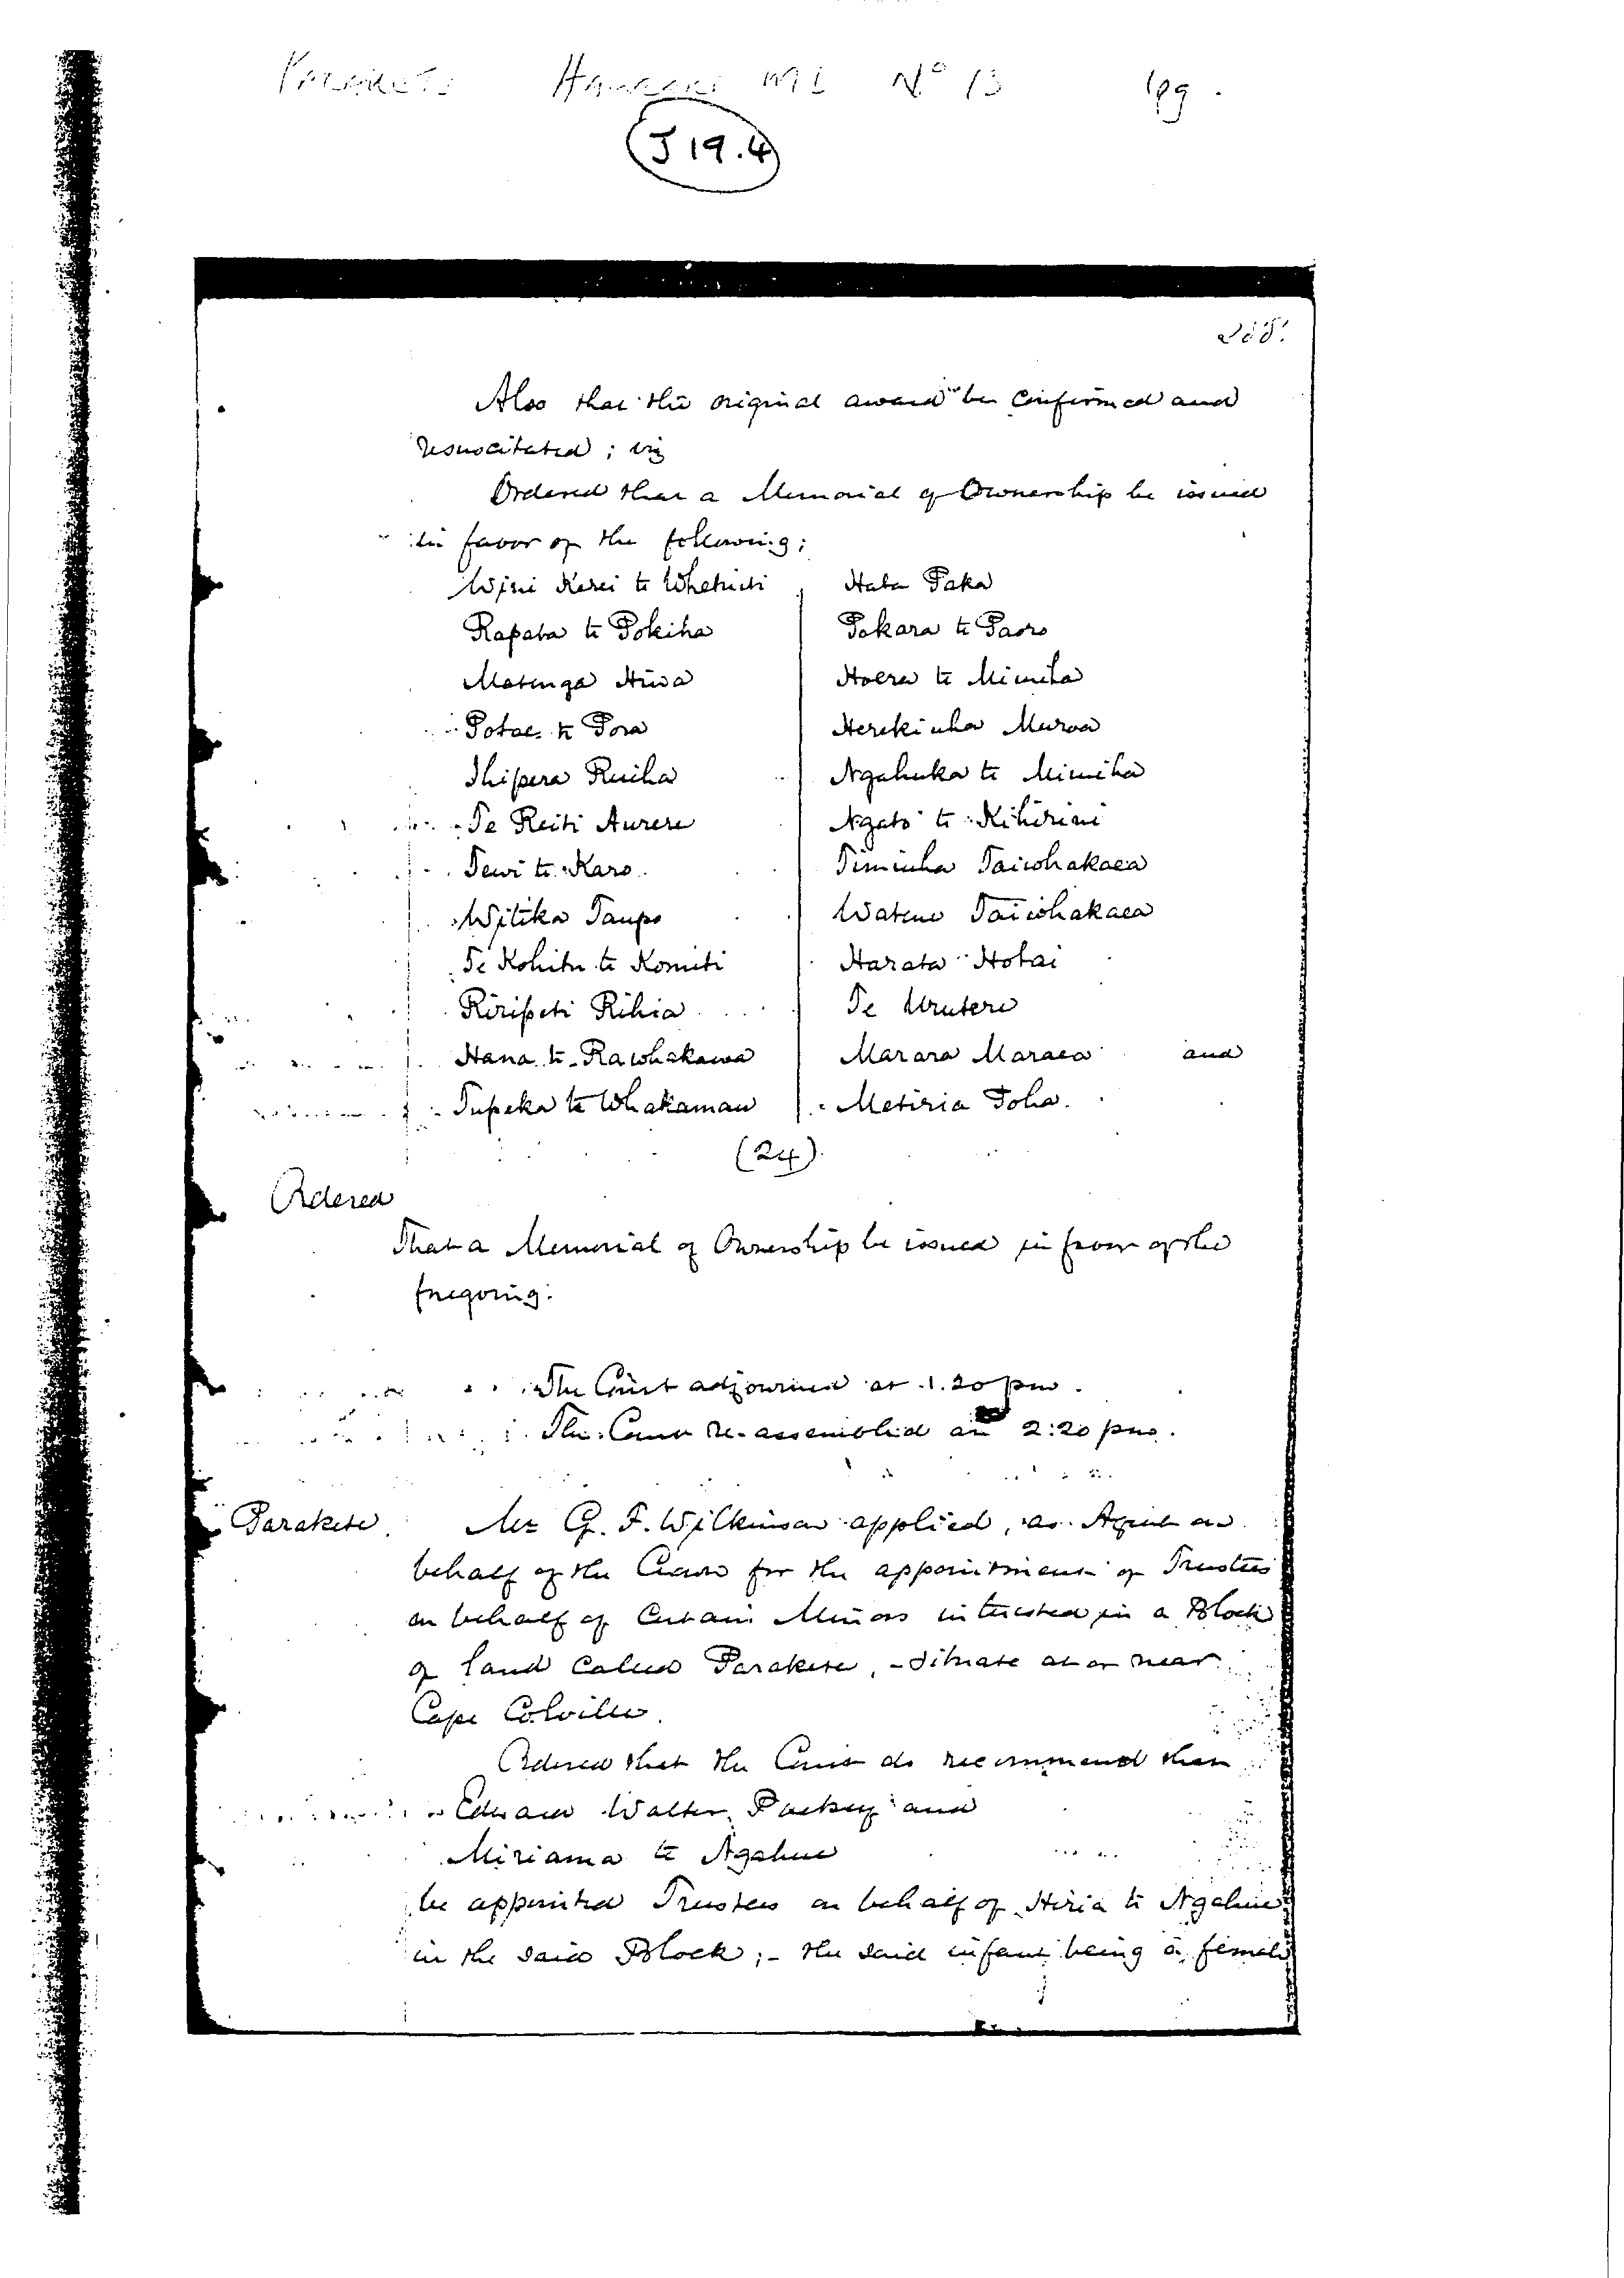 Hauraki MB No 13 189.
J 19.4
Also that the original award be confirmed and
resuscitated; viz
Ordered that a Memorial of Ownership be issued
in favor of the following;
Wini Kerei te Whetuiti Hata Paka
Rapata te Pokiha Pokara te Paoro
Matenga Hiwa Hoera te Mimiha
Potae te Pora Herekiuha Murva
Ihipera Ruiha Ngahuka te Mimiha
Te Reiti Aurere Ngato te Kihirini
Tewi te Karo Timiuha Taiwhakaea
Witika Taupo Watene Taiwhakaea
Te Kohitu te Komiti Harata Hotai
Riripeti Rihia Te Urutere
Hana te Rawhakawa Marara Maraea and
Tupeka te Whakamau Metiria Toha.
(24)
Ordered
That a Memorial of Ownership be issued in favor of the
foregoing.
The Court adjourned at 1.20 pm.
The Court re-assembled at 2:20 pm.
Parakete Mr G. F. Wilkinson applied, as Agent on
behalf of the Crown for the appointment of Trustees
on behalf of Certain Minors interested in a Block
of land Called Parakete, - Situate at or near
Cape Colville.
Ordered that the Court do recommend that
Edward Walter Puckey and
Miriama te Ngahue
be appointed Trustees on behalf of Hiria te Ngahue
in the said Block; - the said infant being a female